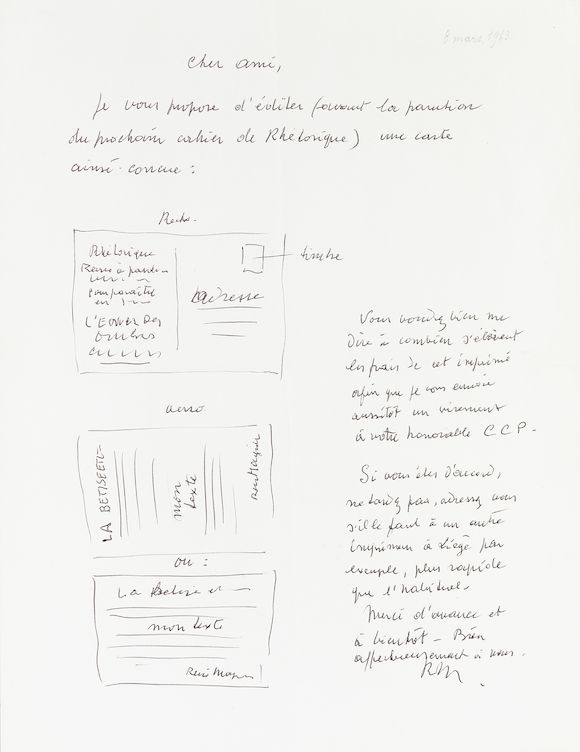 8 mars, 1963
Cher ami,
Je vous propose d'éditer (avant la parution
du prochain cahier de Rhétorique) une carte
ainsi conçue :
Recto.
Rhétorique
timbre
L'adresse
verso
LA BETISE ET
mon
texte
René Magritte
ou :
La Bêtise et
mon texte
René Magr
Vous voudrez bien me
dire à combien s'élèvent
les frais de cet imprimé
afin que je vous envoie
aussitôt un virement
à votre honorable CCP.
Si vous êtes d'accord,
ne tardez pas, adressez vous
s'il le faut à un autre
imprimeur à Liège par
exemple, plus rapide
que l'habituel.
Merci d'avance et
à bientôt - Bien
affectueusement à vous.
RM